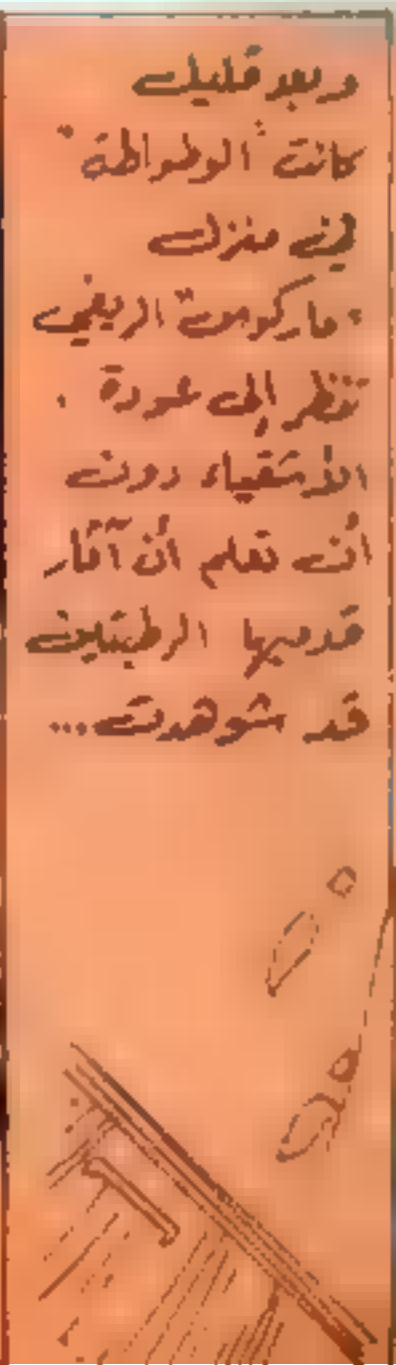 وبعد قليل
كانت "الوطواطة"
في منزل
"ماركوس" الريفي
تنظر إلى عودة
الأشقياء دون
أن تعلم أن آثار
قدميها الرطبتين
قد شوهدت...